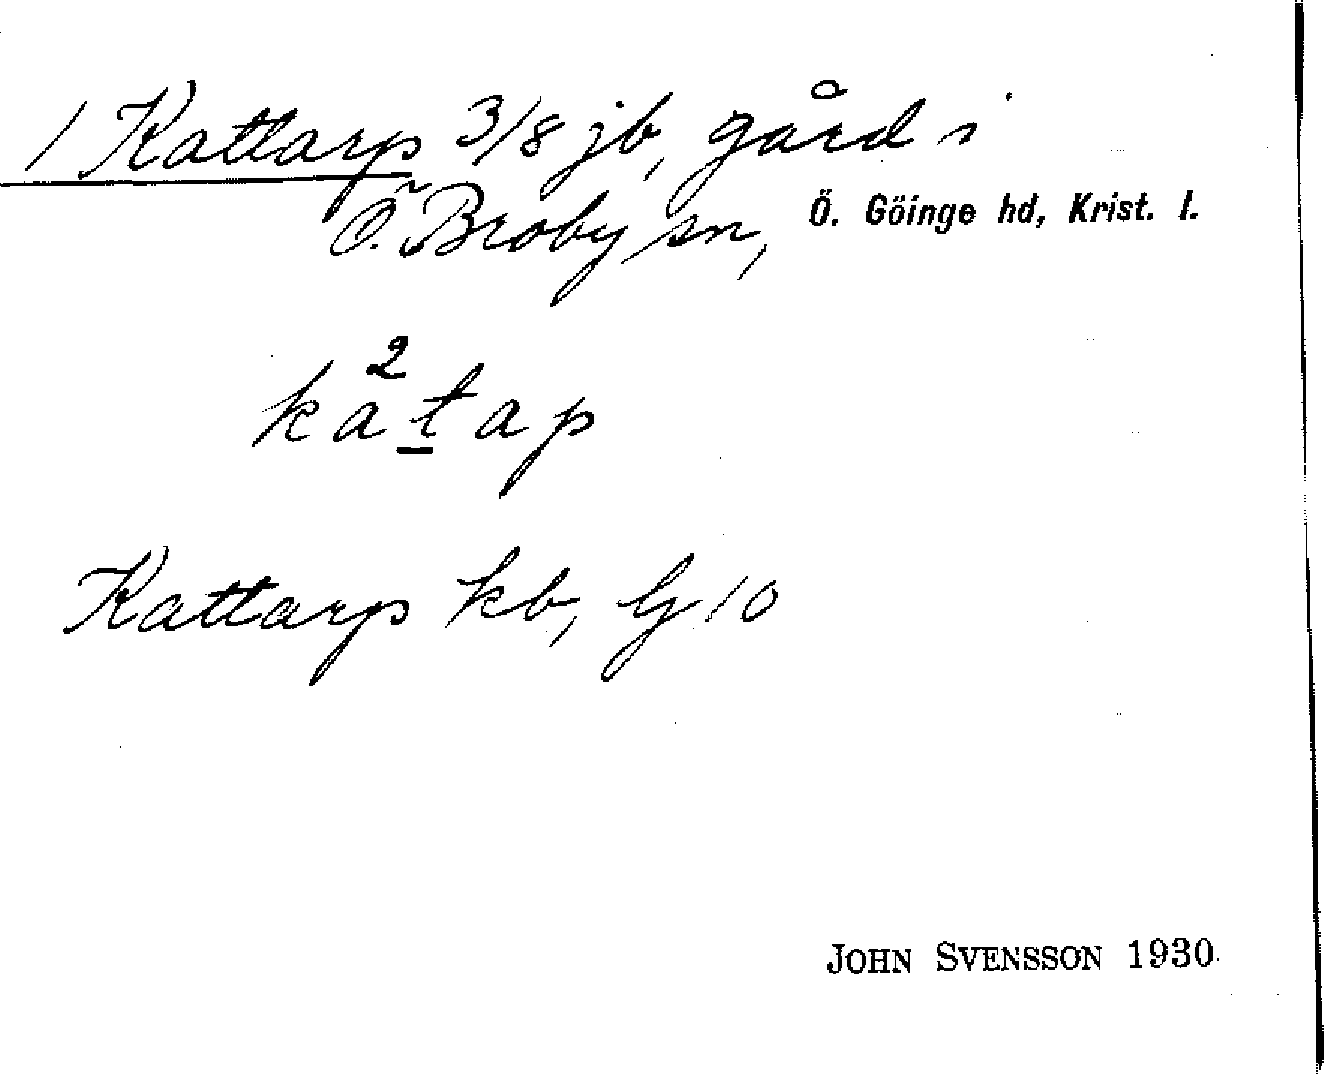 1 Kattarp 3/8 jb, gård i
Ö. Broby sn, Ö. Göinge hd, Krist. l.
ka²t̲ap
Kattarp kb, G 10
JOHN SVENSSON 1930